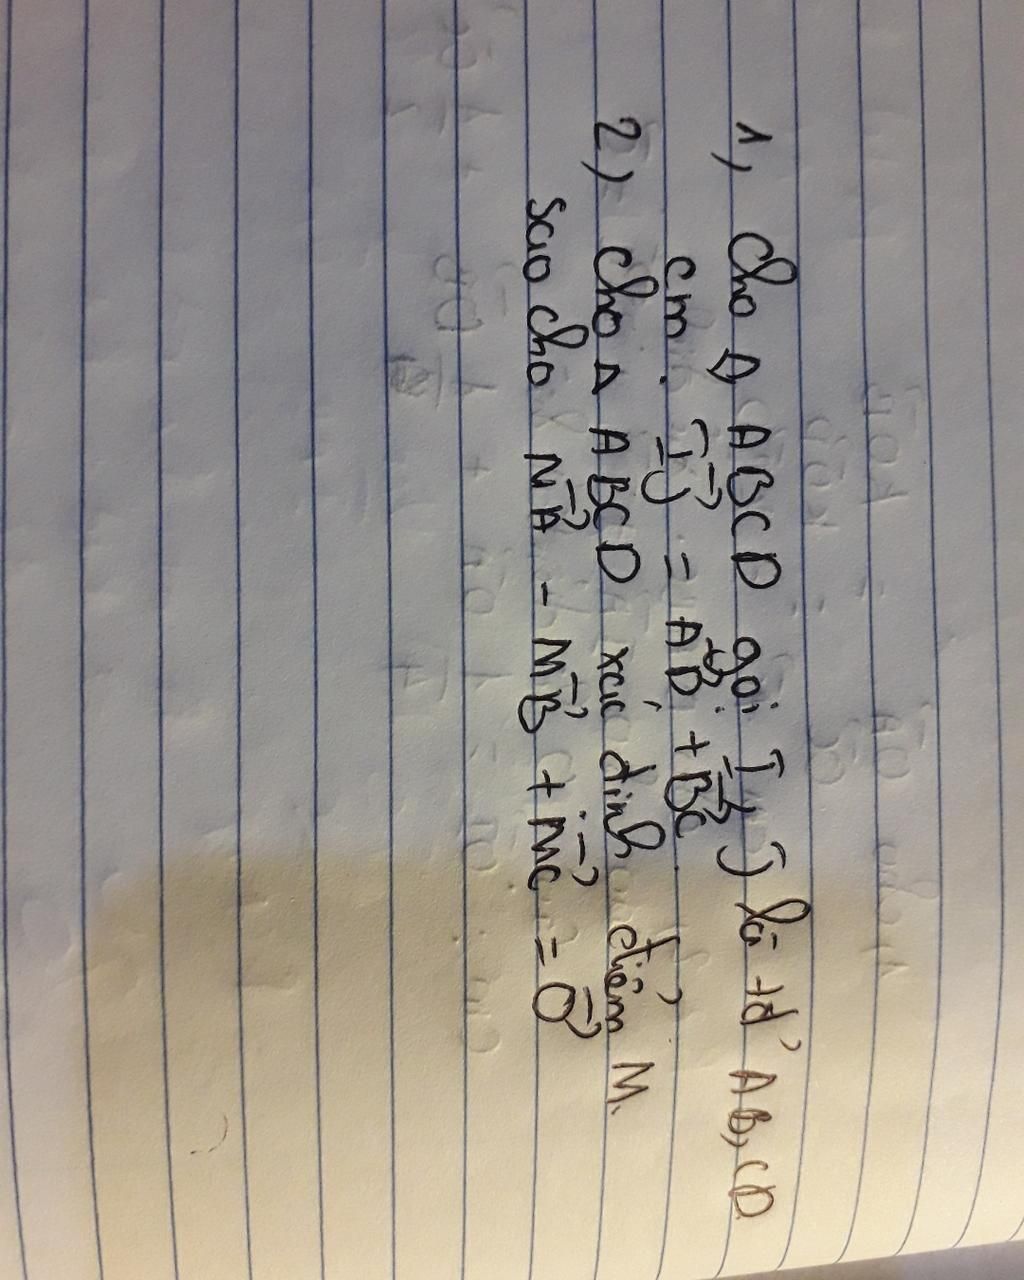 1, Cho △ ABCD gọi I, J là tđ' AB, CD
cm. IJ→ = AD→ + BC→
2), cho △ ABCD xác định điểm M.
sao cho MA→ - MB→ + MC→ = O→